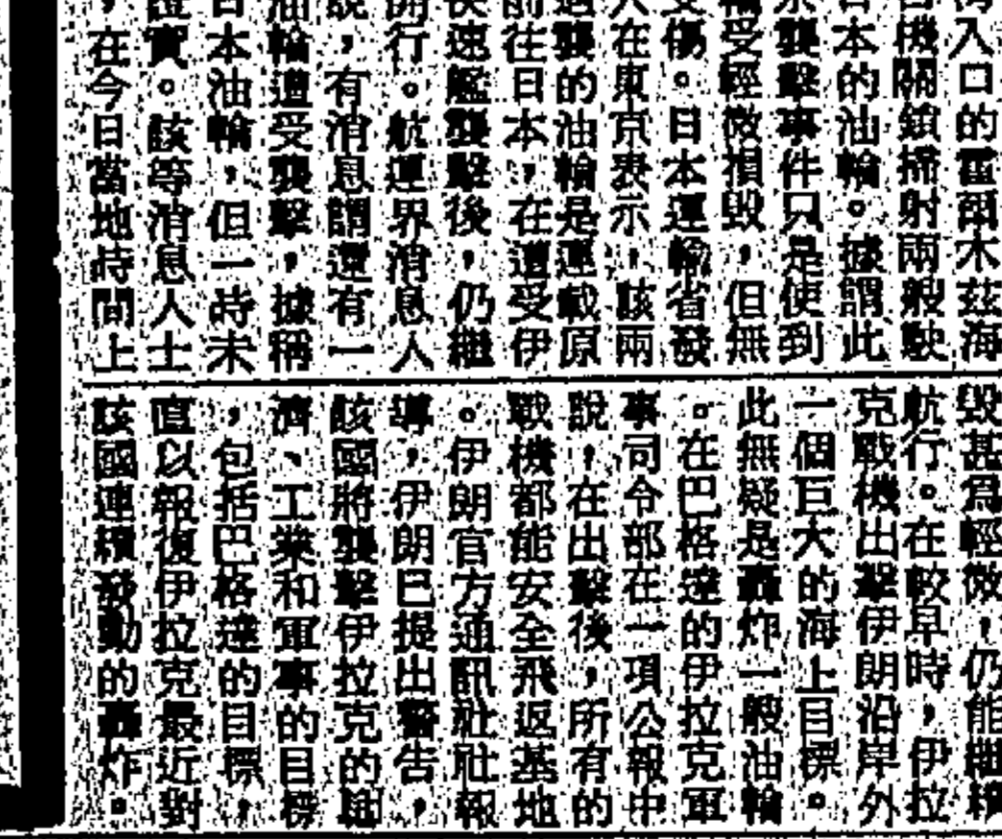 入口的霍爾木茲海
機關鎗掃射兩艘駛
本的油輪。據謂此
襲擊事件只是使到
受輕微損毀，但無
傷。日本運輸省發
在東京表示，該兩
襲的油輪是運載原
往日本，在遭受伊
速艦襲擊後，仍繼
行。航運界消息人
，有消息謂還有一
輪遭受襲擊，據稱
本油輪，但一時未
實。該等消息人士
在今日當地時間上
毀甚為輕微，仍能繼續
航行。在較早時，伊拉
克戰機出擊伊朗沿岸外
一個巨大的海上目標。
此無疑是轟炸一艘油輪
。在巴格達的伊拉克軍
事司令部在一項公報中
說，在出擊後，所有的
戰機都能安全飛返基地
。伊朗官方通訊社社報
導，伊朗已提出警告，
該國將襲擊伊拉克的經
濟、工業和軍事的目標
，包括巴格達的目標，
直以報復伊拉克最近對
該國連續發動的轟炸。